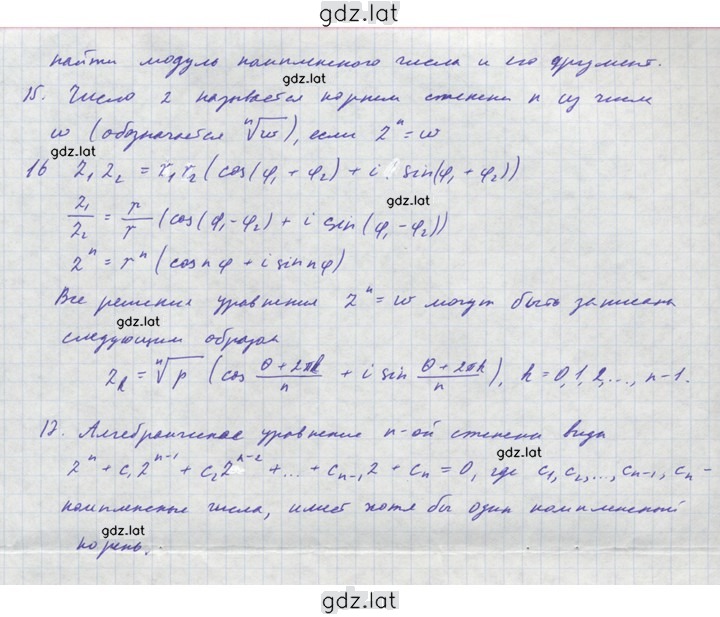 gdz.lat
найти модуль комплексного числа и его аргумент.
gdz.lat
15. Число z называется корнем степени n из числа
w (обозначается ⁿ√w), если zⁿ = w
gdz.lat
16 z₁ z₂ = r₁ r₂ (cos(φ₁ + φ₂) + i sin(φ₁ + φ₂))
gdz.lat
z₁/z₂ = r/r (cos(φ₁ - φ₂) + i sin(φ₁ - φ₂))
zⁿ = rⁿ (cos nφ + i sin nφ)
Все решения уравнения zⁿ = w могут быть записаны
gdz.lat
следующим образом
zₖ = ⁿ√p (cos (θ + 2πk)/n + i sin (θ + 2πk)/n), k = 0,1,2,..., n-1.
17. Алгебраическое уравнение n-ой степени вида
gdz.lat
zⁿ + c₁zⁿ⁻¹ + c₂zⁿ⁻² + ... + cₙ₋₁z + cₙ = 0, где c₁, c₂,..., cₙ₋₁, cₙ -
комплексные числа, имеет хотя бы один комплексный
gdz.lat
корень.
gdz.lat